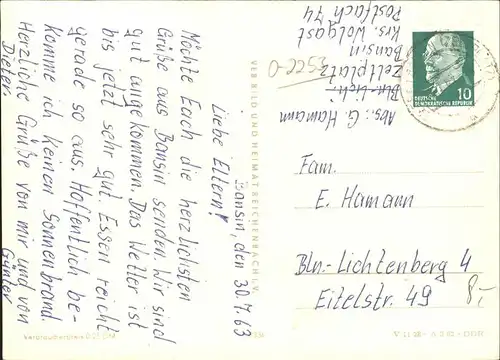 Bansin, den 30.7.63
Liebe Eltern!
Möchte Euch die herzlichsten
Grüße aus Bansin senden. Wir sind
gut angekommen. Das Wetter ist
bis jetzt sehr gut. Essen reicht
gerade so aus. Hoffentlich be-
komme ich keinen Sonnenbrand.
Herzliche Grüße von mir und von
Dieter.
Günter
Abs.: G. Hamann
Bln-Lich.
Zeltplatz
Bansin
Krs. Wolgast
Postfach 74
VEB BILD UND HEIMAT REICHENBACH I. V.
10
DEUTSCHE
DEMOKRATISCHE REPUBLIK
Fam.
E. Hamann
Bln.-Lichtenberg 4
Eitelstr. 49
8,-